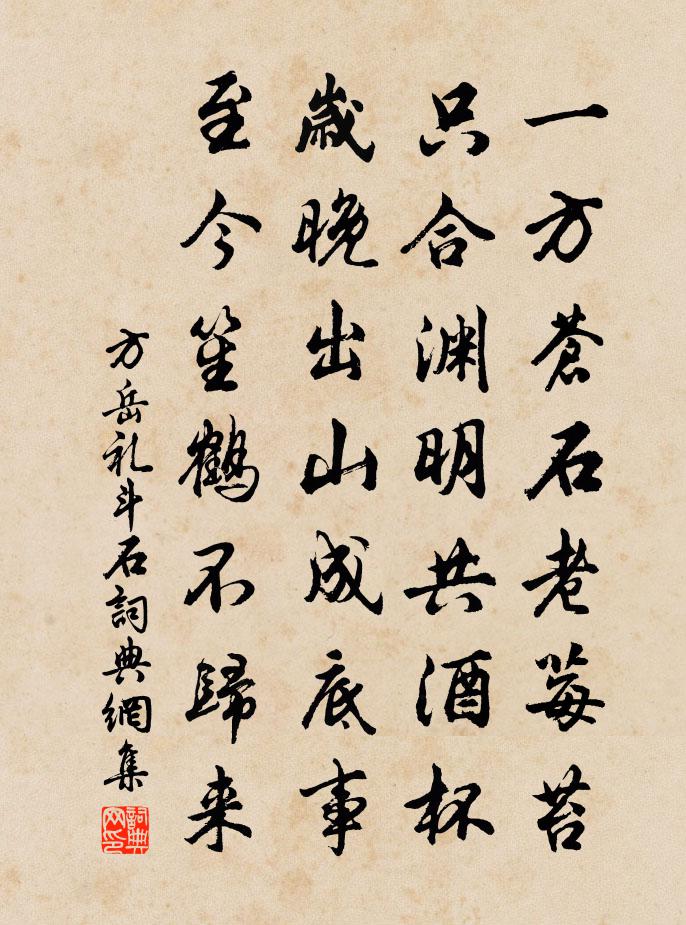 一方蒼石老莓苔
只合渊明共酒杯
歲晚出山成底事
至今笙鶴不歸来
方岳礼斗石詞典網集
詞典网印